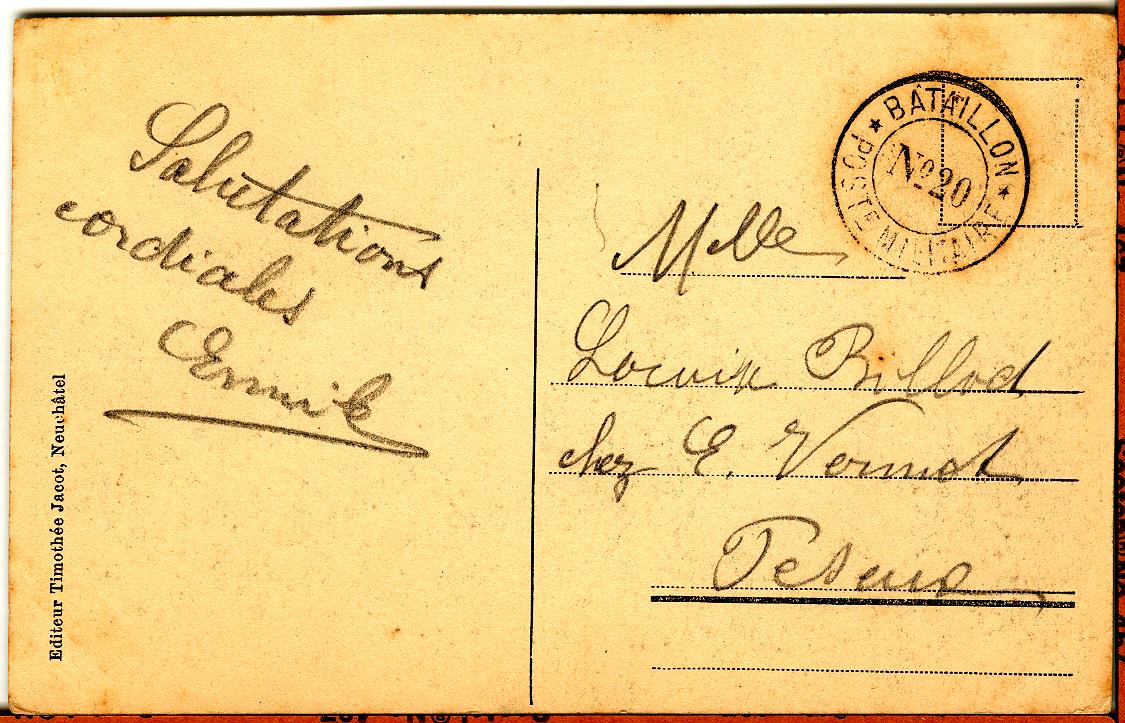 Salutations
cordiales
Emile
Editeur Timothée Jacot, Neuchâtel
BATAILLON
No 20
POSTE MILITAIRE
Mlle
Billod
chez E. Vermot
Peseux